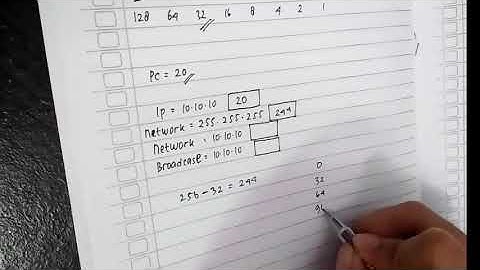 128 64 32 16 8 4 2 1
PC = 20
IP = 10.10.10 20
Network = 255.255.255 244
Network = 10.10.10
Broadcase = 10.10.10
256 - 32 = 244
0
32
64
96